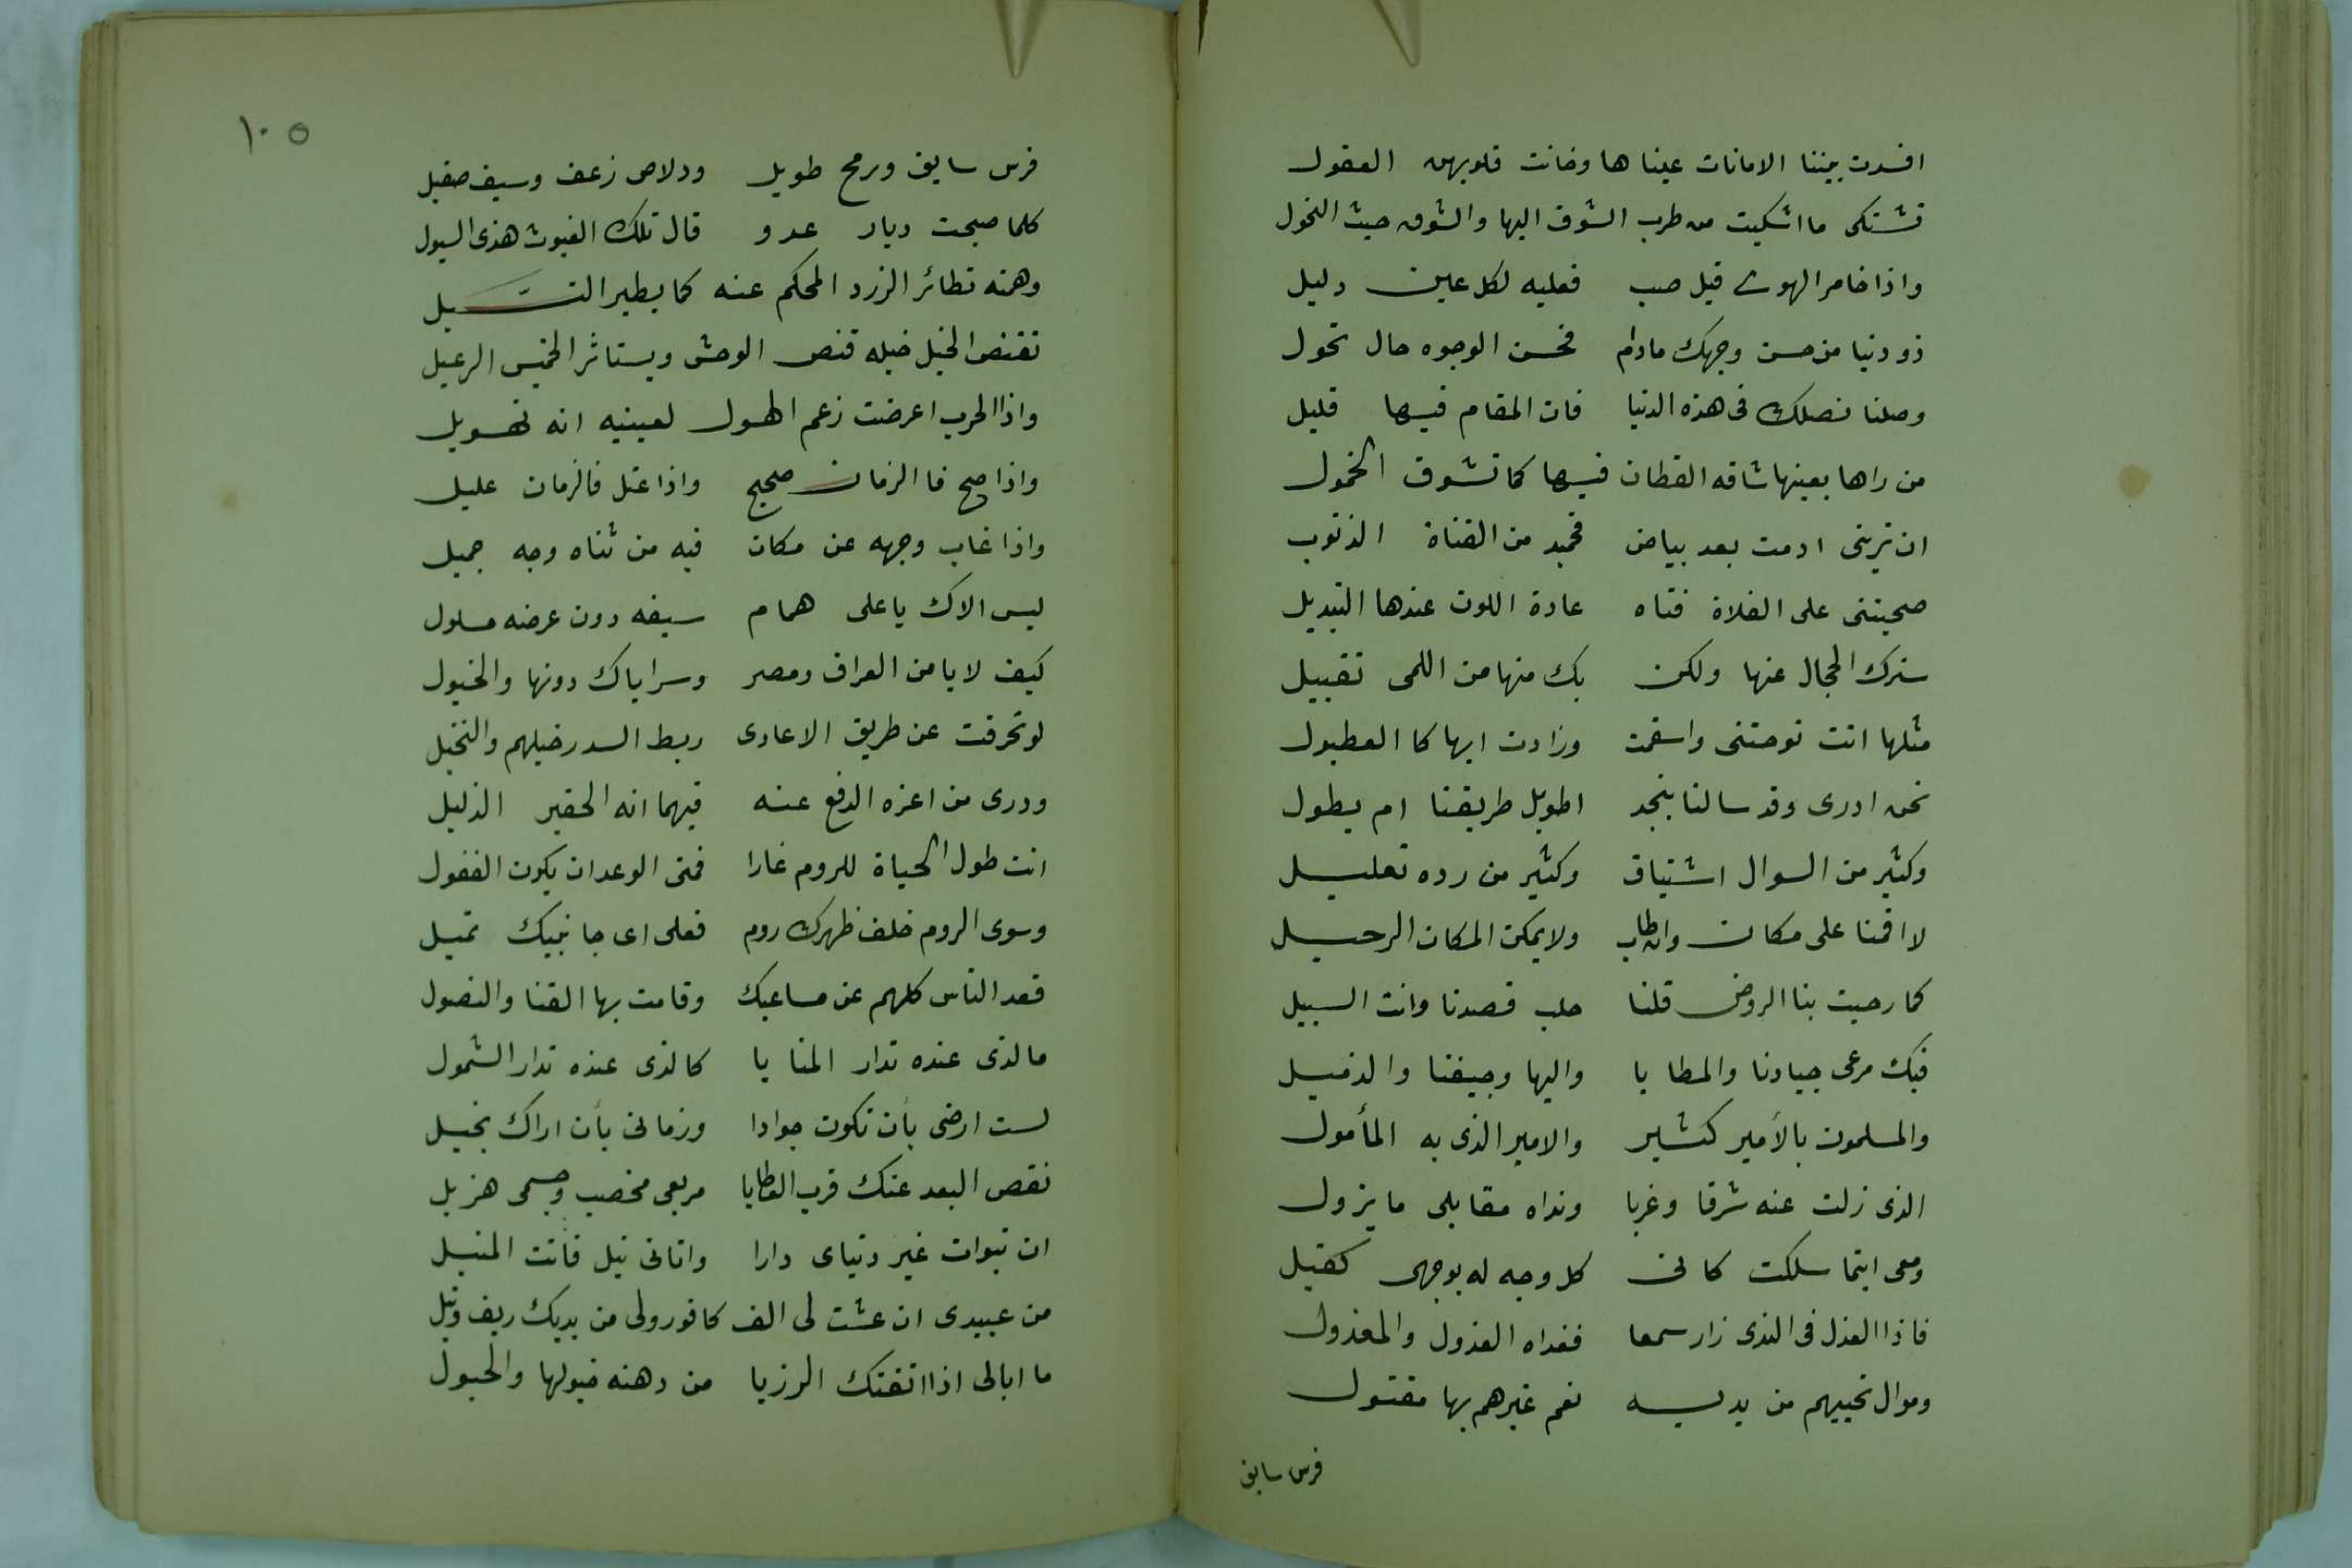 افسدت بيننا الامانات عيناها وخانت قلوبهن العقول
تشتكى ما اشتكيت من طرب الشوق اليها والشوق حيث النحول
واذا خامر الهوى قبل صب فعليه لكل عين دليل
ذو دنيا من حسن وجهك مادام فحسن الوجوه حال تحول
وصلنا نصلك فى هذه الدنيا فان المقام فيها قليل
من راها بعينها شاقه القطان فيها كما تشوق الحمول
ان ترينى ادمت بعد بياض فحميد من القناة الذبوب
صحبتنى على الفلاة فتاه عادة اللون عندها التبديل
سترك الحجال عنها ولكن بك منها من اللمى تقبيل
مثلها انت لوحتنى واسقمت وزادت ابها كا العطبول
نحن ادرى وقد سالنا بنجد اطويل طريقنا ام يطول
وكثير من السوال اشتياق وكثير من رده تعليل
لا اقمنا على مكان وان طاب ولا يمكن المكان الرحيل
كما رحبت بنا الروض قلنا حلب قصدنا وانت السبيل
فيك مرعى جيادنا والمطايا واليها وجيفنا والذميل
والمسلمون بالأمير كثير والامير الذى به المأمول
الذى زلت عنه شرقا وغربا ونداه مقابلى ما يزول
ومعى اينما سلكت كانى كل وجه له بوجهى كفيل
فاذا العذل فى الندى زار سمعا ففداه العذول والمعذول
وموال تحييهم من يديه نعم غيرهم بها مقتول
فرس سابق
١٠٥
فرس سابق ورمح طويل ودلاص زعف وسيف صقيل
كلما صبحت ديار عدو قال تلك الغيوث هذى السيول
وهمته تطائر الزرد المحكم عنه كما يطير النسيل
تقنص الخيل خيله قنص الوحش ويستاثر الخميس الرعيل
واذا الحرب اعرضت زعم الهول لعينيه انه تهويل
واذا صح فا الزمان صحيح واذا عتل فالزمان عليل
واذا غاب وجهه عن مكان فيه من ثناه وجه جميل
ليس الاك يا على همام سيفه دون عرضه مسلول
كيف لا يامن العراق ومصر وسراياك دونها والخيول
لو تحرفت عن طريق الاعادى ربط السدر خيلهم والنخيل
ودرى من اعزه الدفع عنه فيهما انه الحقير الذليل
انت طول الحياة للروم غازا فمتى الوعدان يكون القفول
وسوى الروم خلف ظهرك روم فعلى اى جانبيك تميل
قعد الناس كلهم عن مساعيك وقامت بها القنا والنصول
مالذى عنده تدار المنايا كالذى عنده تدار الشمول
لست ارضى بأن تكون جوادا وزمانى بأن اراك بخيل
نقص البعد عنك قرب العطايا مربعى مخصب وجسمى هزيل
ان تبوات غير دنياى دارا واتانى نيل فأنت المنيل
من عبيدى ان عشت لى الف كافور ولى من يديك ريف ونيل
ما ابالى اذا اتقتك الرزيا من دهته خبولها والحبول